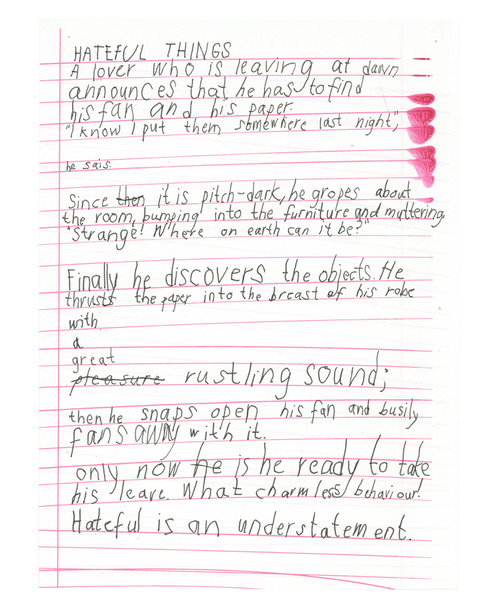 HATEFUL THINGS
A lover who is leaving at dawn
announces that he has to find
his fan and his paper.
"I know I put them somewhere last night",
he sais.
Since then it is pitch-dark, he gropes about
the room, bumping into the furniture and muttering,
"Strange! Where on earth can it be?"
Finally he discovers the objects. He
thrusts the paper into the breast of his robe
with
a
great
pleasure rustling sound;
then he snaps open his fan and busily
fans away with it.
only now he is he ready to take
his leave. What charmless behaviour!
Hateful is an understatement.